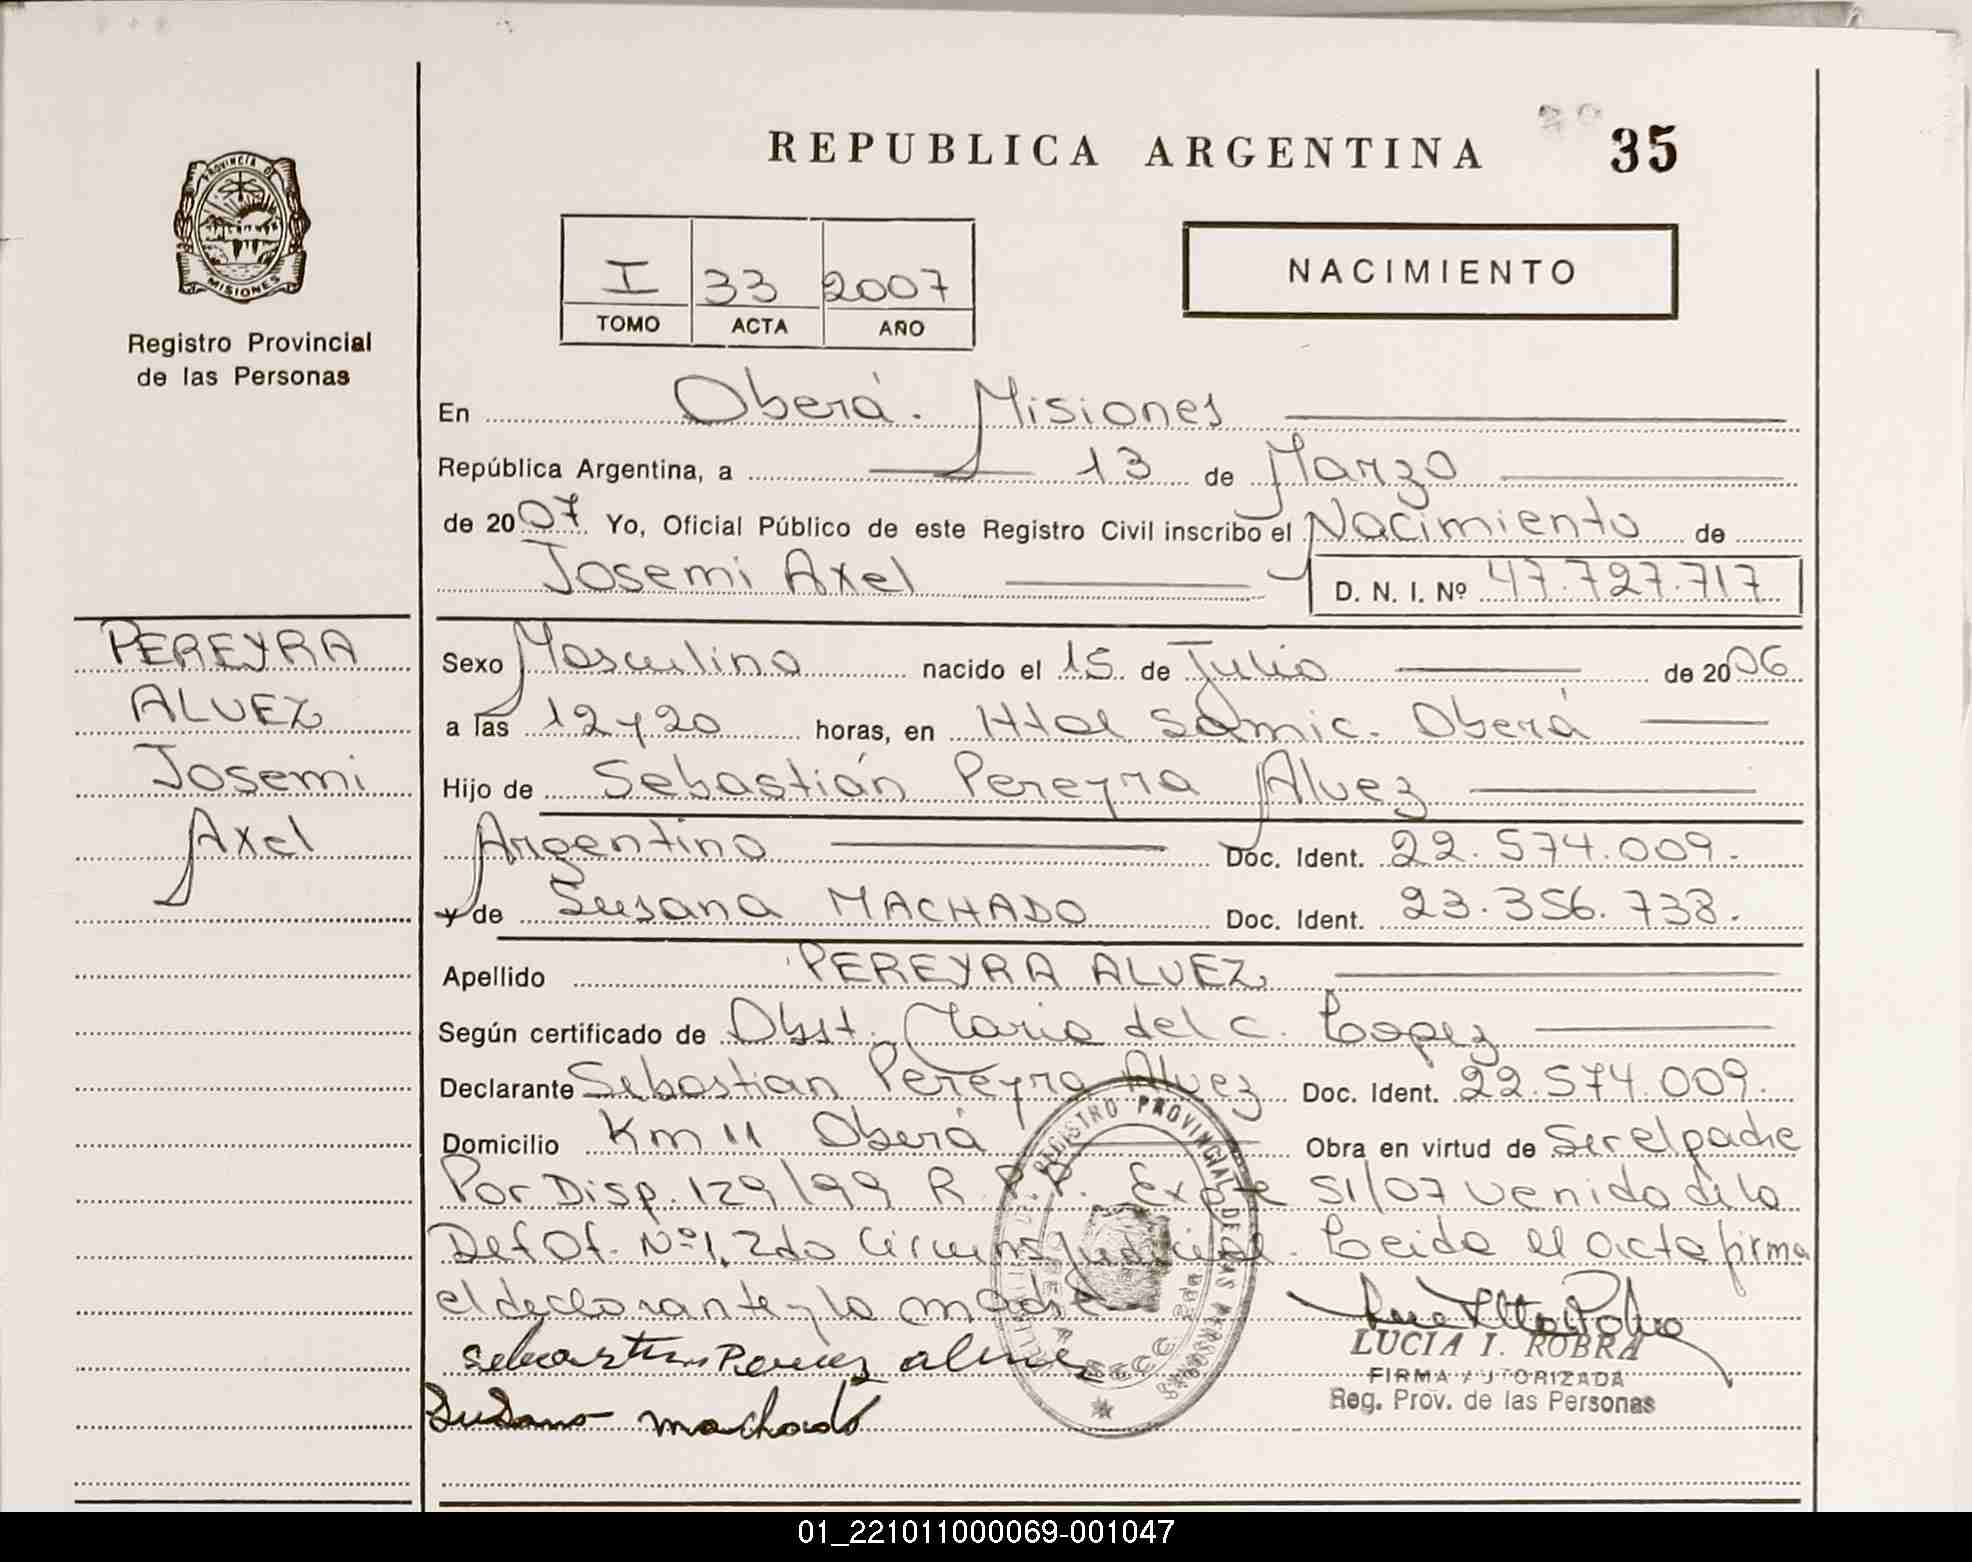 REPUBLICA ARGENTINA 35
PROVINCIA DE
MISIONES
Registro Provincial
de las Personas
I 33 2007
TOMO ACTA AÑO
NACIMIENTO
En Oberá. Misiones
República Argentina, a 13 de Marzo
de 2007 Yo, Oficial Público de este Registro Civil inscribo el Nacimiento de
Josemi Axel D. N. I. Nº 47.727.717
PEREYRA
ALVEZ
Josemi
Axel
Sexo Masculino nacido el 15 de Julio de 2006
a las 12 y 20 horas, en Htal Samic. Oberá
Hijo de Sebastián Pereyra Alvez
Argentino Doc. Ident. 22.574.009.
y de Susana MACHADO Doc. Ident. 23.356.738.
Apellido PEREYRA ALVEZ
Según certificado de Obst. Maria del C. Lopez
Declarante Sebastian Pereyra Alvez Doc. Ident. 22.574.009.
Domicilio Km 11 Oberá Obra en virtud de Ser el padre
Por Disp. 129/99 R.P.P. Expte 51/07 venido de la
Def Of. Nº1, 2da Circuns Judicial. Leida el acta firma
el declarante y la madre
Susana machado
LUCIA I. ROBRA
FIRMA AUTORIZADA
Reg. Prov. de las Personas
REGISTRO PROVINCIAL DE LAS PERSONAS
01_221011000069-001047